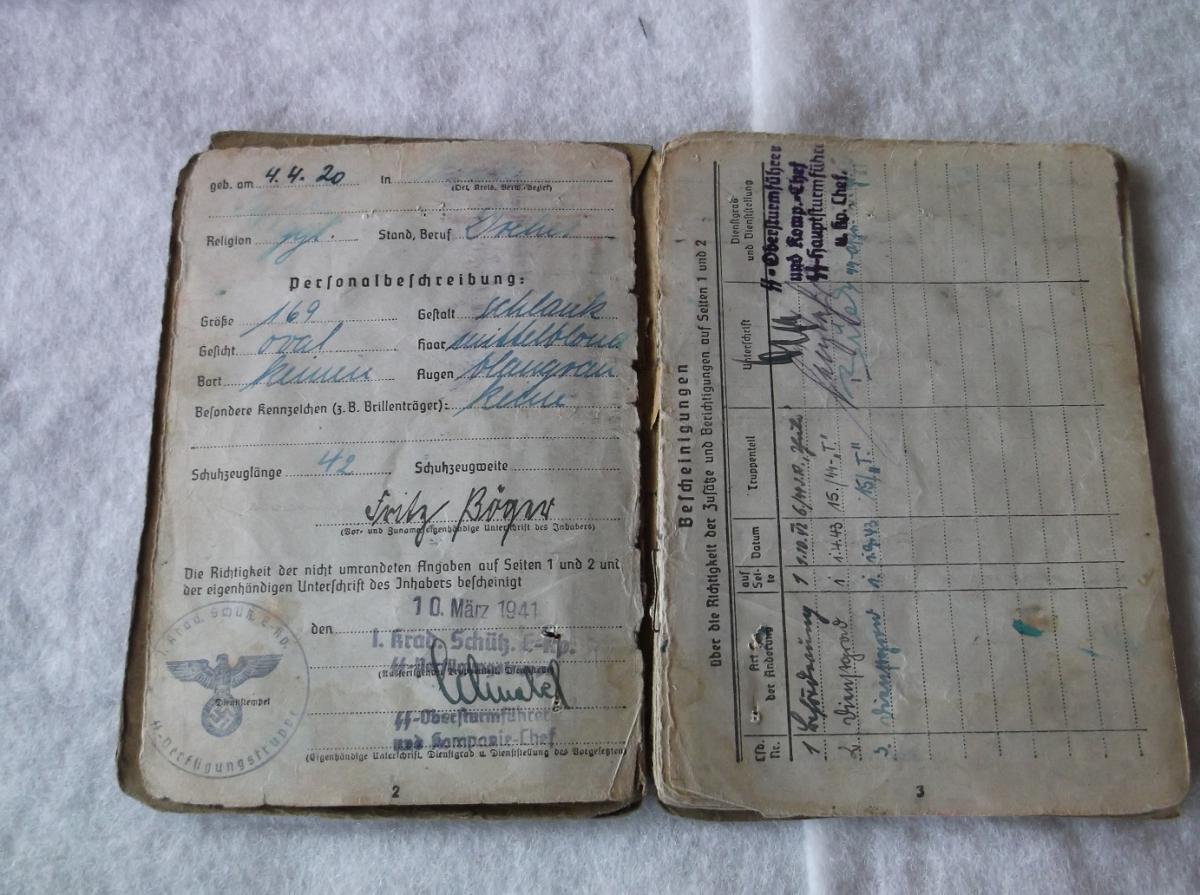 geb. am 4.4.20 in
(Ort, Kreis, Verw.-Bezirk)
Religion Stand, Beruf
Personalbeschreibung:
Größe 169 Gestalt schlank
Gesicht oval Haar mittelblond
Bart keinen Augen blaugrau
Besondere Kennzeichen (z. B. Brillenträger): keine
Schuhzeuglänge 42 Schuhzeugweite
Fritz Böger
(Vor- und Zuname, eigenhändige Unterschrift des Inhabers)
Die Richtigkeit der nicht umrandeten Angaben auf Seiten 1 und 2 und
der eigenhändigen Unterschrift des Inhabers bescheinigt
den 10. März 1941
1. Krad. Schütz. E-Kp.
SS-Obersturmführer
und Kompanie-Chef
(Eigenhändige Unterschrift, Dienstgrad u. Dienststellung des Vorgesetzten)
1. Krad. Schütz. E-Kp.
Dienststempel
SS-Verfügungstruppe
2
Bescheinigungen
über die Richtigkeit der Zusätze und Berichtigungen auf Seiten 1 und 2
Lfd. Nr. Art der Änderung auf Seite Datum Truppenteil Unterschrift Dienstgrad und Dienststellung
1 Beförderung 1 SS-Obersturmführer und Komp.-Chef
2. Dienstgrad 1 1.4.43 15./SS-„T." SS-Hauptsturmführer u. Kp. Chef.
3. Dienstgrad 1. 1.9.43 15/„T."
3